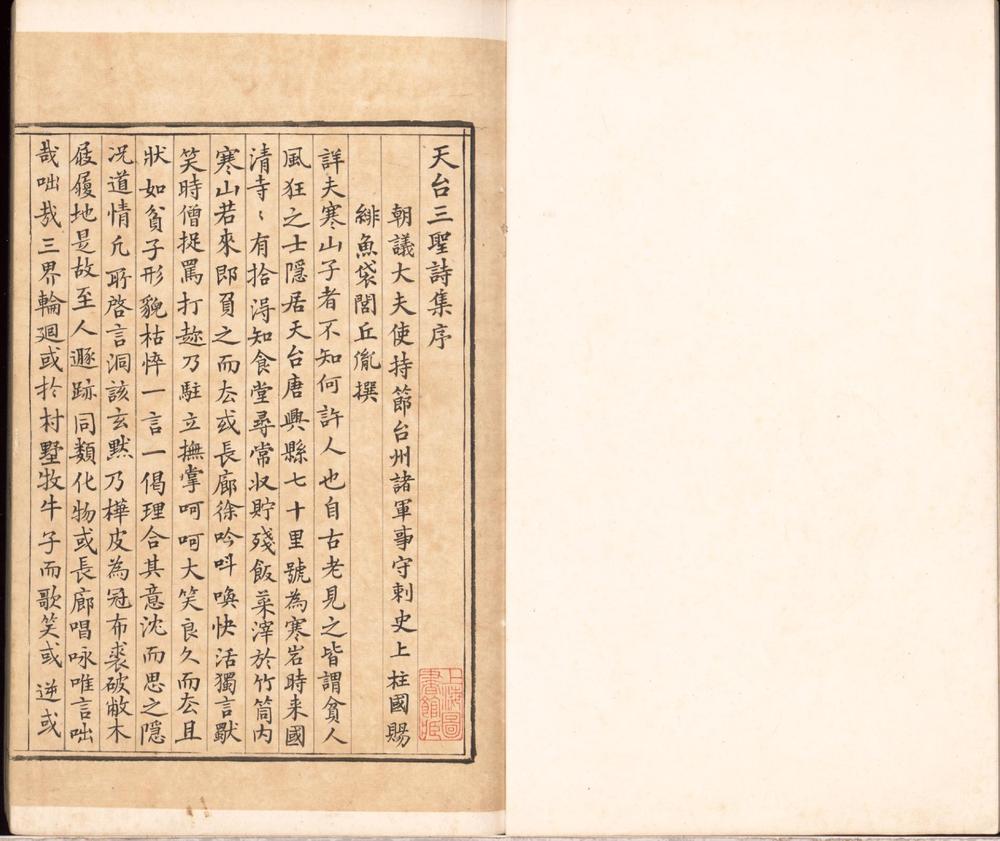 天台三聖詩集序
朝議大夫使持節台州諸軍事守刺史上柱國賜
緋魚袋閭丘胤撰
詳夫寒山子者不知何許人也自古老見之皆謂貧人
風狂之士隱居天台唐興縣七十里號為寒岩時来國
清寺〻有拾淂知食堂尋常収貯殘飯菜滓於竹筒内
寒山若來即負之而厺或長廊徐吟呌喚快活獨言獨
笑時僧捉罵打趂乃駐立撫掌呵呵大笑良久而厺且
狀如貧子形貌枯悴一言一偈理合其意沈而思之隱
況道情凡所啓言洞該玄黙乃樺皮為冠布裘破敝木
屐履地是故至人遯跡同類化物或長廊唱咏唯言咄
哉咄哉三界輪廻或扵村墅牧牛子而歌笑或逆或
上海圖
書館藏